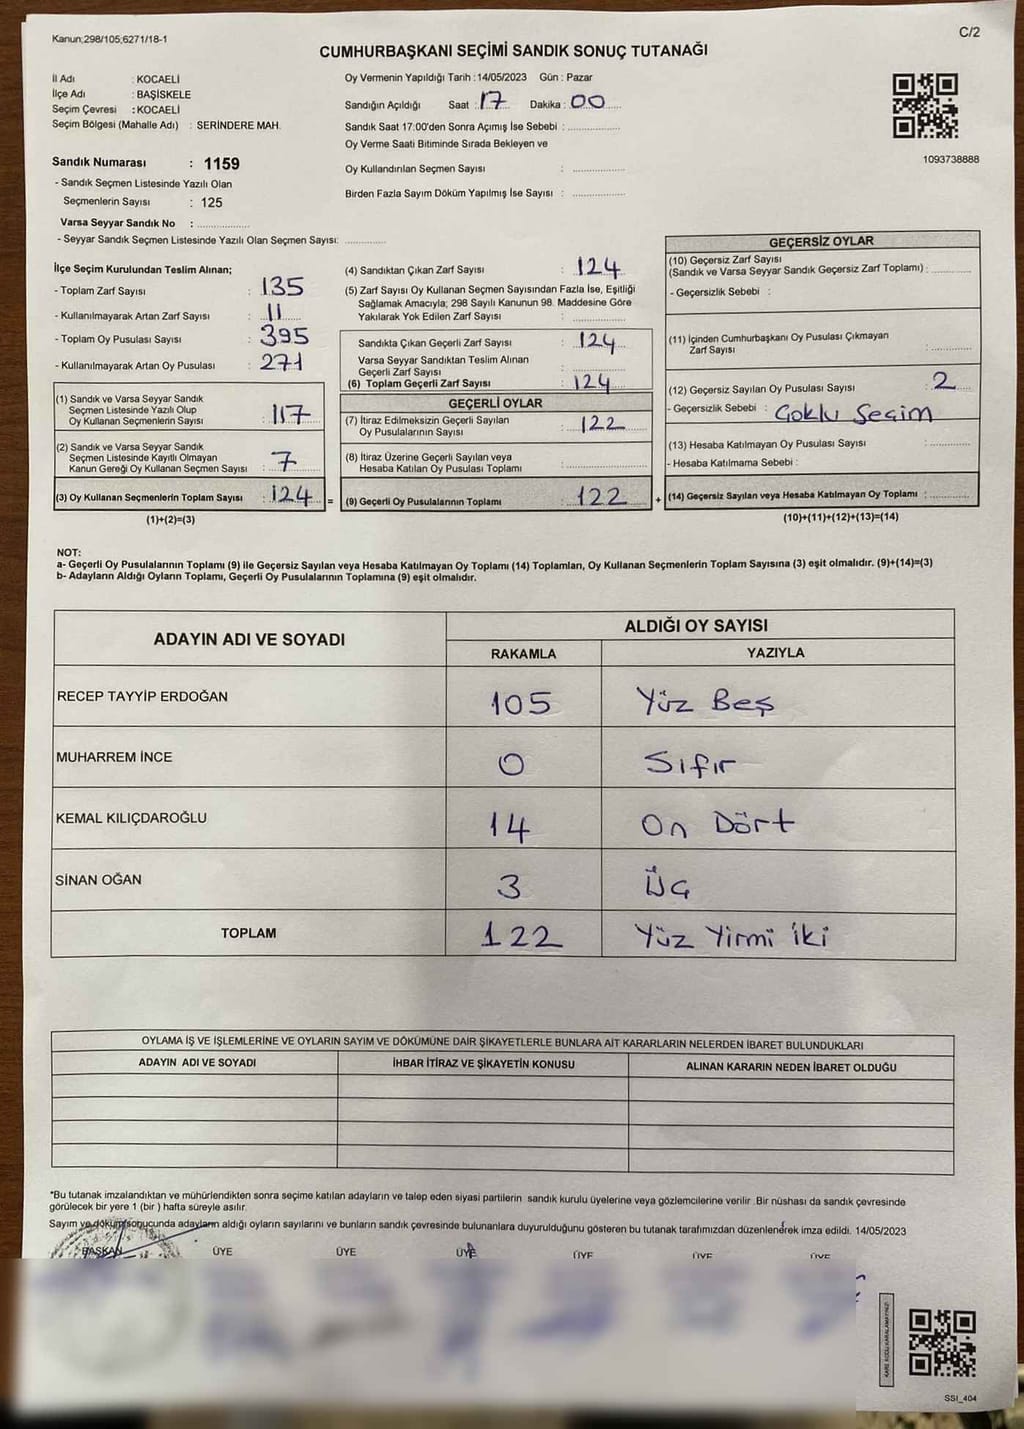 Kanun;298/105;6271/18-1
C/2
CUMHURBAŞKANI SEÇİMİ SANDIK SONUÇ TUTANAĞI
İl Adı : KOCAELİ
İlçe Adı : BAŞİSKELE
Seçim Çevresi : KOCAELİ
Seçim Bölgesi (Mahalle Adı) : SERİNDERE MAH.
Sandık Numarası : 1159
- Sandık Seçmen Listesinde Yazılı Olan
Seçmenlerin Sayısı : 125
Varsa Seyyar Sandık No : ................
- Seyyar Sandık Seçmen Listesinde Yazılı Olan Seçmen Sayısı: ............
Oy Vermenin Yapıldığı Tarih : 14/05/2023 Gün : Pazar
Sandığın Açıldığı Saat : 17 Dakika : 00
Sandık Saat 17:00'den Sonra Açımış İse Sebebi : ................
Oy Verme Saati Bitiminde Sırada Bekleyen ve
Oy Kullandırılan Seçmen Sayısı : ................
Birden Fazla Sayım Döküm Yapılmış İse Sayısı : ................
1093738888
İlçe Seçim Kurulundan Teslim Alınan;
- Toplam Zarf Sayısı : 135
- Kullanılmayarak Artan Zarf Sayısı : 11
- Toplam Oy Pusulası Sayısı : 395
- Kullanılmayarak Artan Oy Pusulası : 271
(1) Sandık ve Varsa Seyyar Sandık
Seçmen Listesinde Yazılı Olup
Oy Kullanan Seçmenlerin Sayısı : 117
(2) Sandık ve Varsa Seyyar Sandık
Seçmen Listesinde Kayıtlı Olmayan
Kanun Gereği Oy Kullanan Seçmen Sayısı : 7
(3) Oy Kullanan Seçmenlerin Toplam Sayısı : 124 =
(1)+(2)=(3)
(4) Sandıktan Çıkan Zarf Sayısı : 124
(5) Zarf Sayısı Oy Kullanan Seçmen Sayısından Fazla İse, Eşitliği
Sağlamak Amacıyla; 298 Sayılı Kanunun 98. Maddesine Göre
Yakılarak Yok Edilen Zarf Sayısı : ................
Sandıkta Çıkan Geçerli Zarf Sayısı : 124
Varsa Seyyar Sandıktan Teslim Alınan
Geçerli Zarf Sayısı : ................
(6) Toplam Geçerli Zarf Sayısı : 124
GEÇERLİ OYLAR
(7) İtiraz Edilmeksizin Geçerli Sayılan
Oy Pusulalarının Sayısı : 122
(8) İtiraz Üzerine Geçerli Sayılan veya
Hesaba Katılan Oy Pusulası Toplamı : ................
(9) Geçerli Oy Pusulalarının Toplamı : 122 +
GEÇERSİZ OYLAR
(10) Geçersiz Zarf Sayısı
(Sandık ve Varsa Seyyar Sandık Geçersiz Zarf Toplamı) : ............
- Geçersizlik Sebebi :
(11) İçinden Cumhurbaşkanı Oy Pusulası Çıkmayan
Zarf Sayısı : ............
(12) Geçersiz Sayılan Oy Pusulası Sayısı : 2
- Geçersizlik Sebebi : Çoklu Seçim
(13) Hesaba Katılmayan Oy Pusulası Sayısı : ............
- Hesaba Katılmama Sebebi :
(14) Geçersiz Sayılan veya Hesaba Katılmayan Oy Toplamı : ............
(10)+(11)+(12)+(13)=(14)
NOT:
a- Geçerli Oy Pusulalarının Toplamı (9) ile Geçersiz Sayılan veya Hesaba Katılmayan Oy Toplamı (14) Toplamları, Oy Kullanan Seçmenlerin Toplam Sayısına (3) eşit olmalıdır. (9)+(14)=(3)
b- Adayların Aldığı Oyların Toplamı, Geçerli Oy Pusulalarının Toplamına (9) eşit olmalıdır.
ADAYIN ADI VE SOYADI ALDIĞI OY SAYISI
RAKAMLA YAZIYLA
RECEP TAYYİP ERDOĞAN 105 Yüz Beş
MUHARREM İNCE 0 Sıfır
KEMAL KILIÇDAROĞLU 14 On Dört
SİNAN OĞAN 3 Üç
TOPLAM 122 Yüz Yirmi İki
OYLAMA İŞ VE İŞLEMLERİNE VE OYLARIN SAYIM VE DÖKÜMÜNE DAİR ŞİKAYETLERLE BUNLARA AİT KARARLARIN NELERDEN İBARET BULUNDUKLARI
ADAYIN ADI VE SOYADI İHBAR İTİRAZ VE ŞİKAYETİN KONUSU ALINAN KARARIN NEDEN İBARET OLDUĞU
*Bu tutanak imzalandıktan ve mühürlendikten sonra seçime katılan adayların ve talep eden siyasi partilerin sandık kurulu üyelerine veya gözlemcilerine verilir .Bir nüshası da sandık çevresinde
görülecek bir yere 1 (bir ) hafta süreyle asılır.
Sayım ve döküm sonucunda adayların aldığı oyların sayılarını ve bunların sandık çevresinde bulunanlara duyurulduğunu gösteren bu tutanak tarafımızdan düzenlenerek imza edildi. 14/05/2023
BAŞKAN ÜYE ÜYE ÜYE ÜYE ÜYE ÜYE
KARE KODU KARALAMAYINIZ!
SSI_404